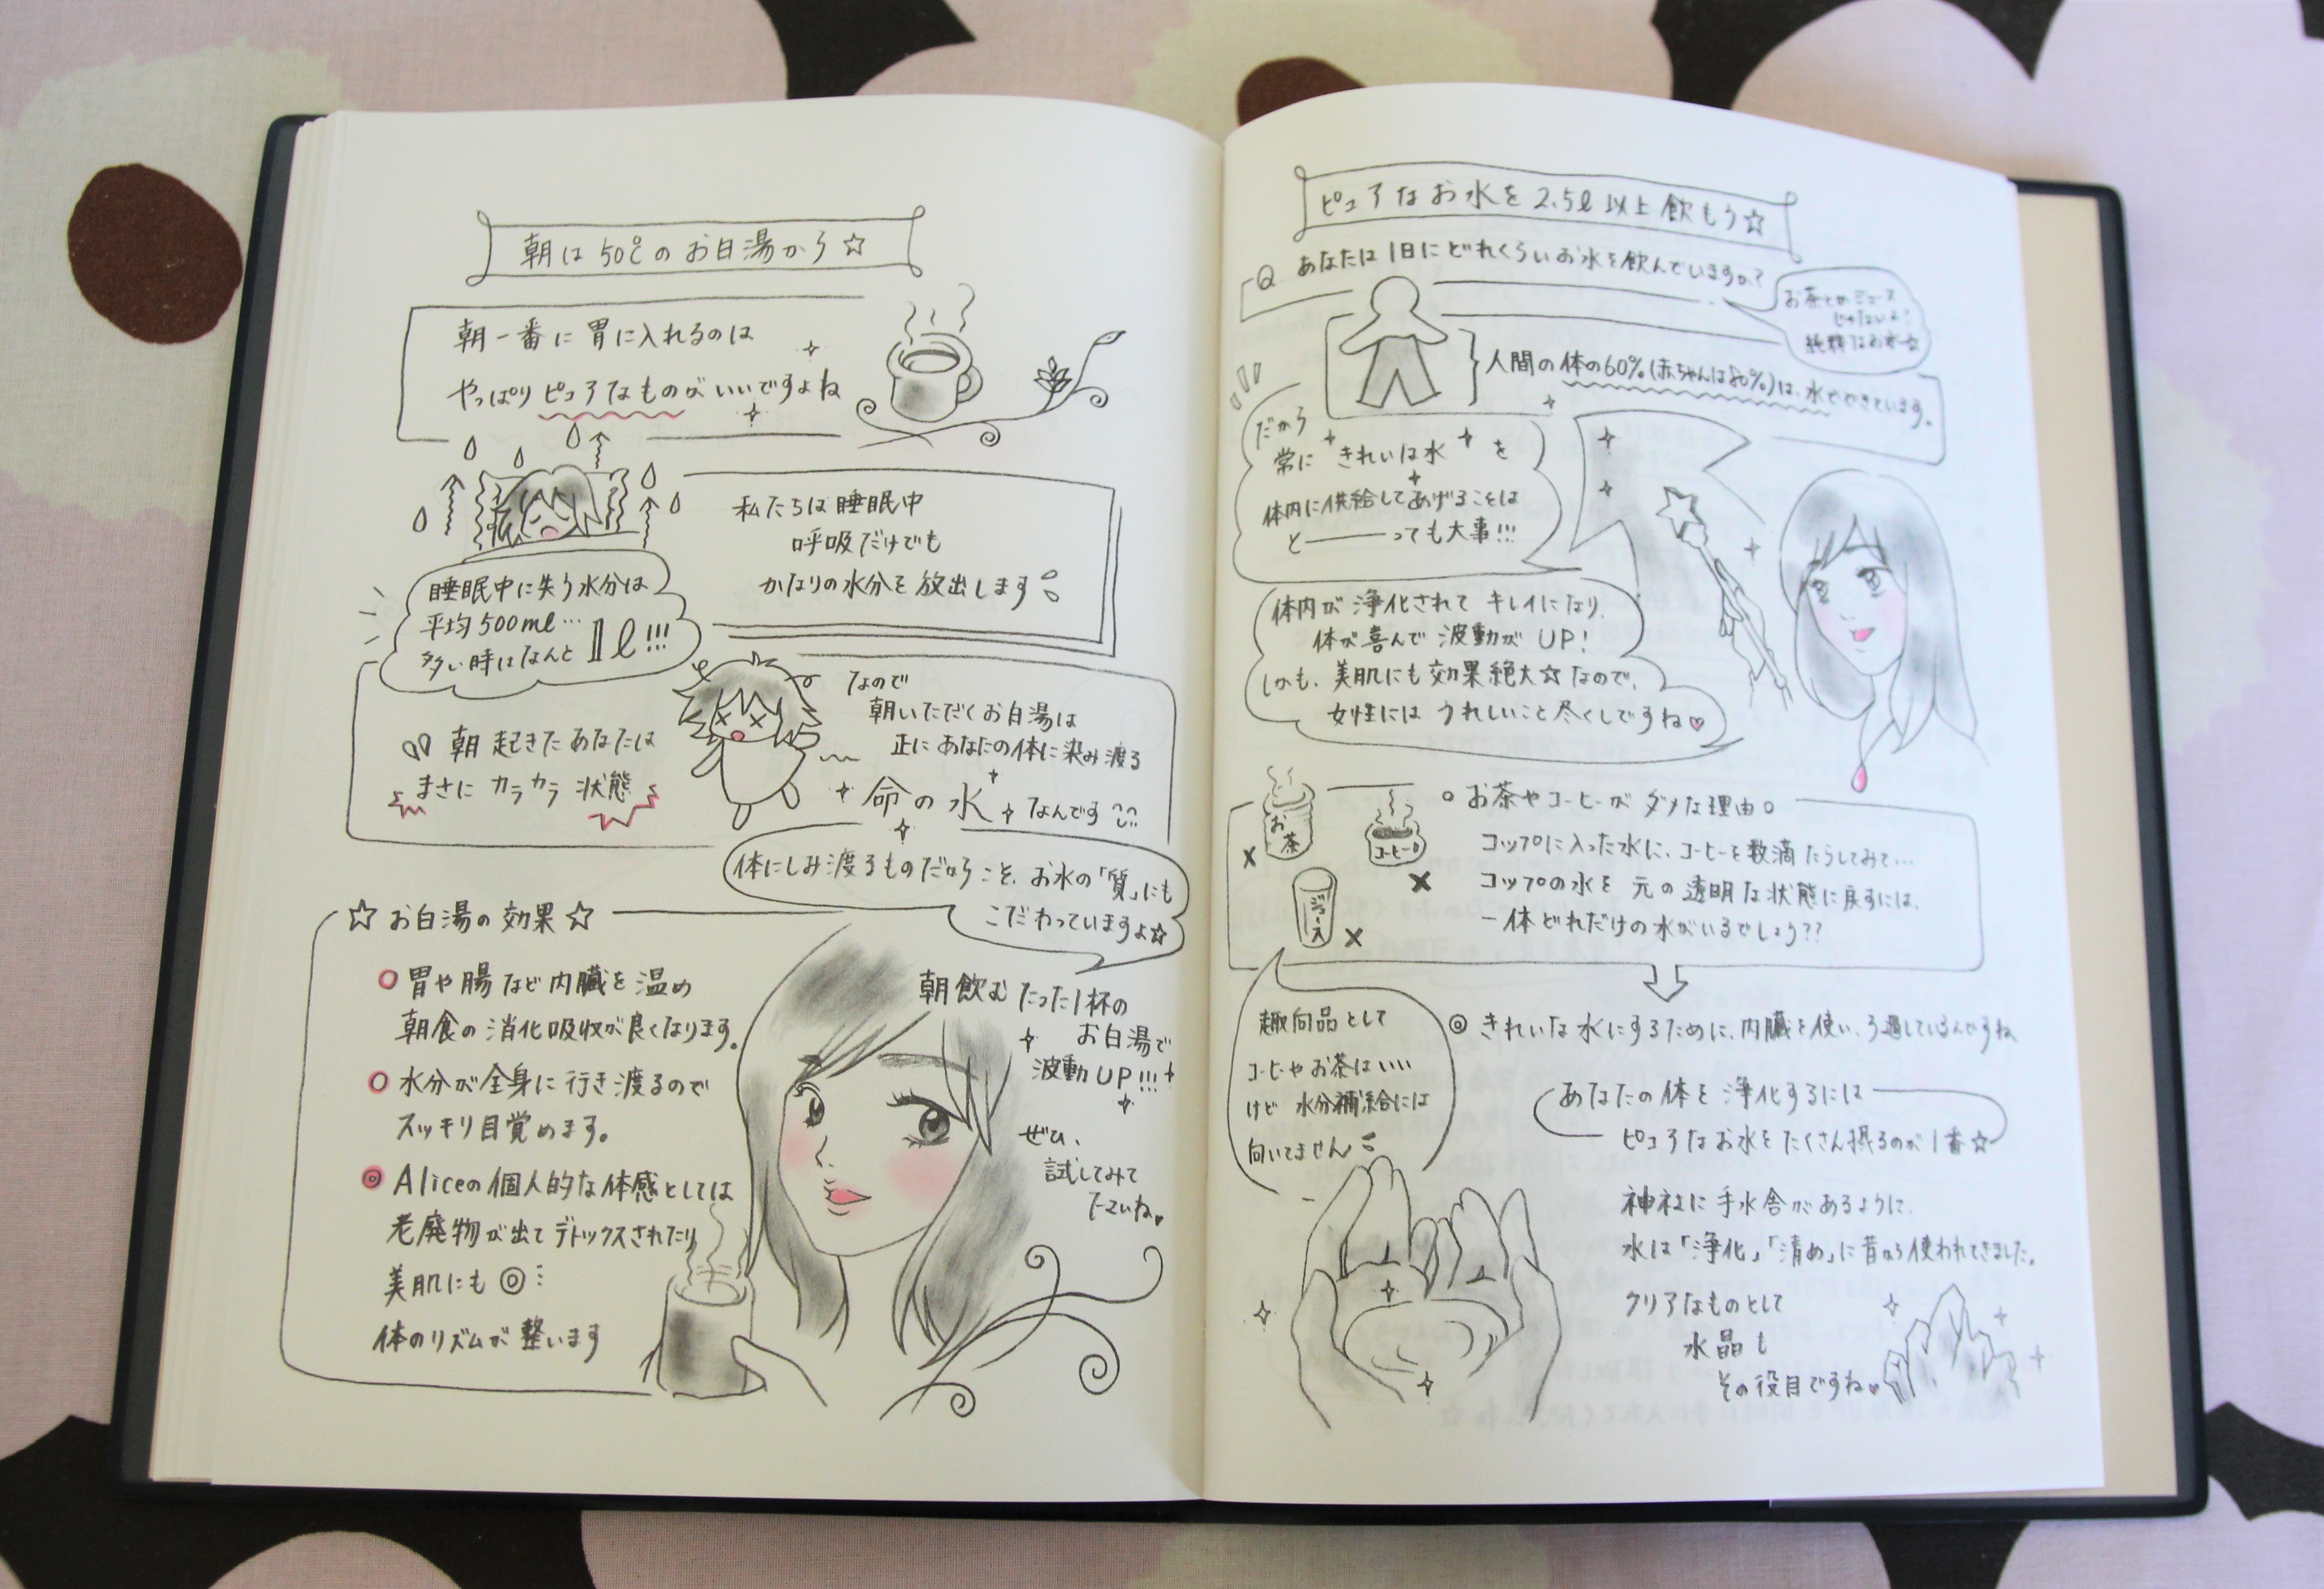 朝は50℃のお白湯から☆
朝一番に胃に入れるのは
やっぱりピュアなものがいいですよね
私たちは睡眠中
呼吸だけでも
かなりの水分を放出します
睡眠中に失う水分は
平均500ml…
多い時はなんと1l!!!
朝起きたあなたは
まさにカラカラ状態
なので
朝いただくお白湯は
正にあなたの体に染み渡る
命の水なんです
体にしみ渡るものだからこそ、お水の「質」にも
こだわっていますよ☆
☆お白湯の効果☆
○胃や腸など内臓を温め
朝食の消化吸収が良くなります。
○水分が全身に行き渡るので
スッキリ目覚めます。
◎Aliceの個人的な体感としては
老廃物が出てデトックスされたり
美肌にも◎
体のリズムが整います
朝飲むたった1杯の
お白湯で
波動UP!!!
ぜひ、
試してみて
ピュアなお水を2.5l以上飲もう☆
Q あなたは1日にどれくらいお水を飲んでいますか?
お茶とかジュース
じゃないよ!
純粋なお水☆
人間の体の60%(赤ちゃんは80%)は、水でできています。
だから
常にきれいは水を
体内に供給してあげることは
と――っても大事!!!
体内が浄化されてキレイになり、
体が喜んで波動がUP!
しかも、美肌にも効果絶大☆なので、
女性にはうれしいこと尽くしですね♡
お茶
コーヒー
ジュース
○お茶やコーヒーがダメな理由○
コップに入った水に、コーヒーを数滴たらしてみて…
コップの水を元の透明な状態に戻すには、
一体どれだけの水がいるでしょう??
趣向品として
コーヒーやお茶はいい
けど水分補給には
向いてません
◎きれいな水にするために、内臓を使い、ろ過しているんですね
あなたの体を浄化するには
ピュアなお水をたくさん摂るのが1番☆
神社に手水舎があるように、
水は「浄化」「清め」に昔から使われてきました。
クリアなものとして
水晶も
その役目ですね♥